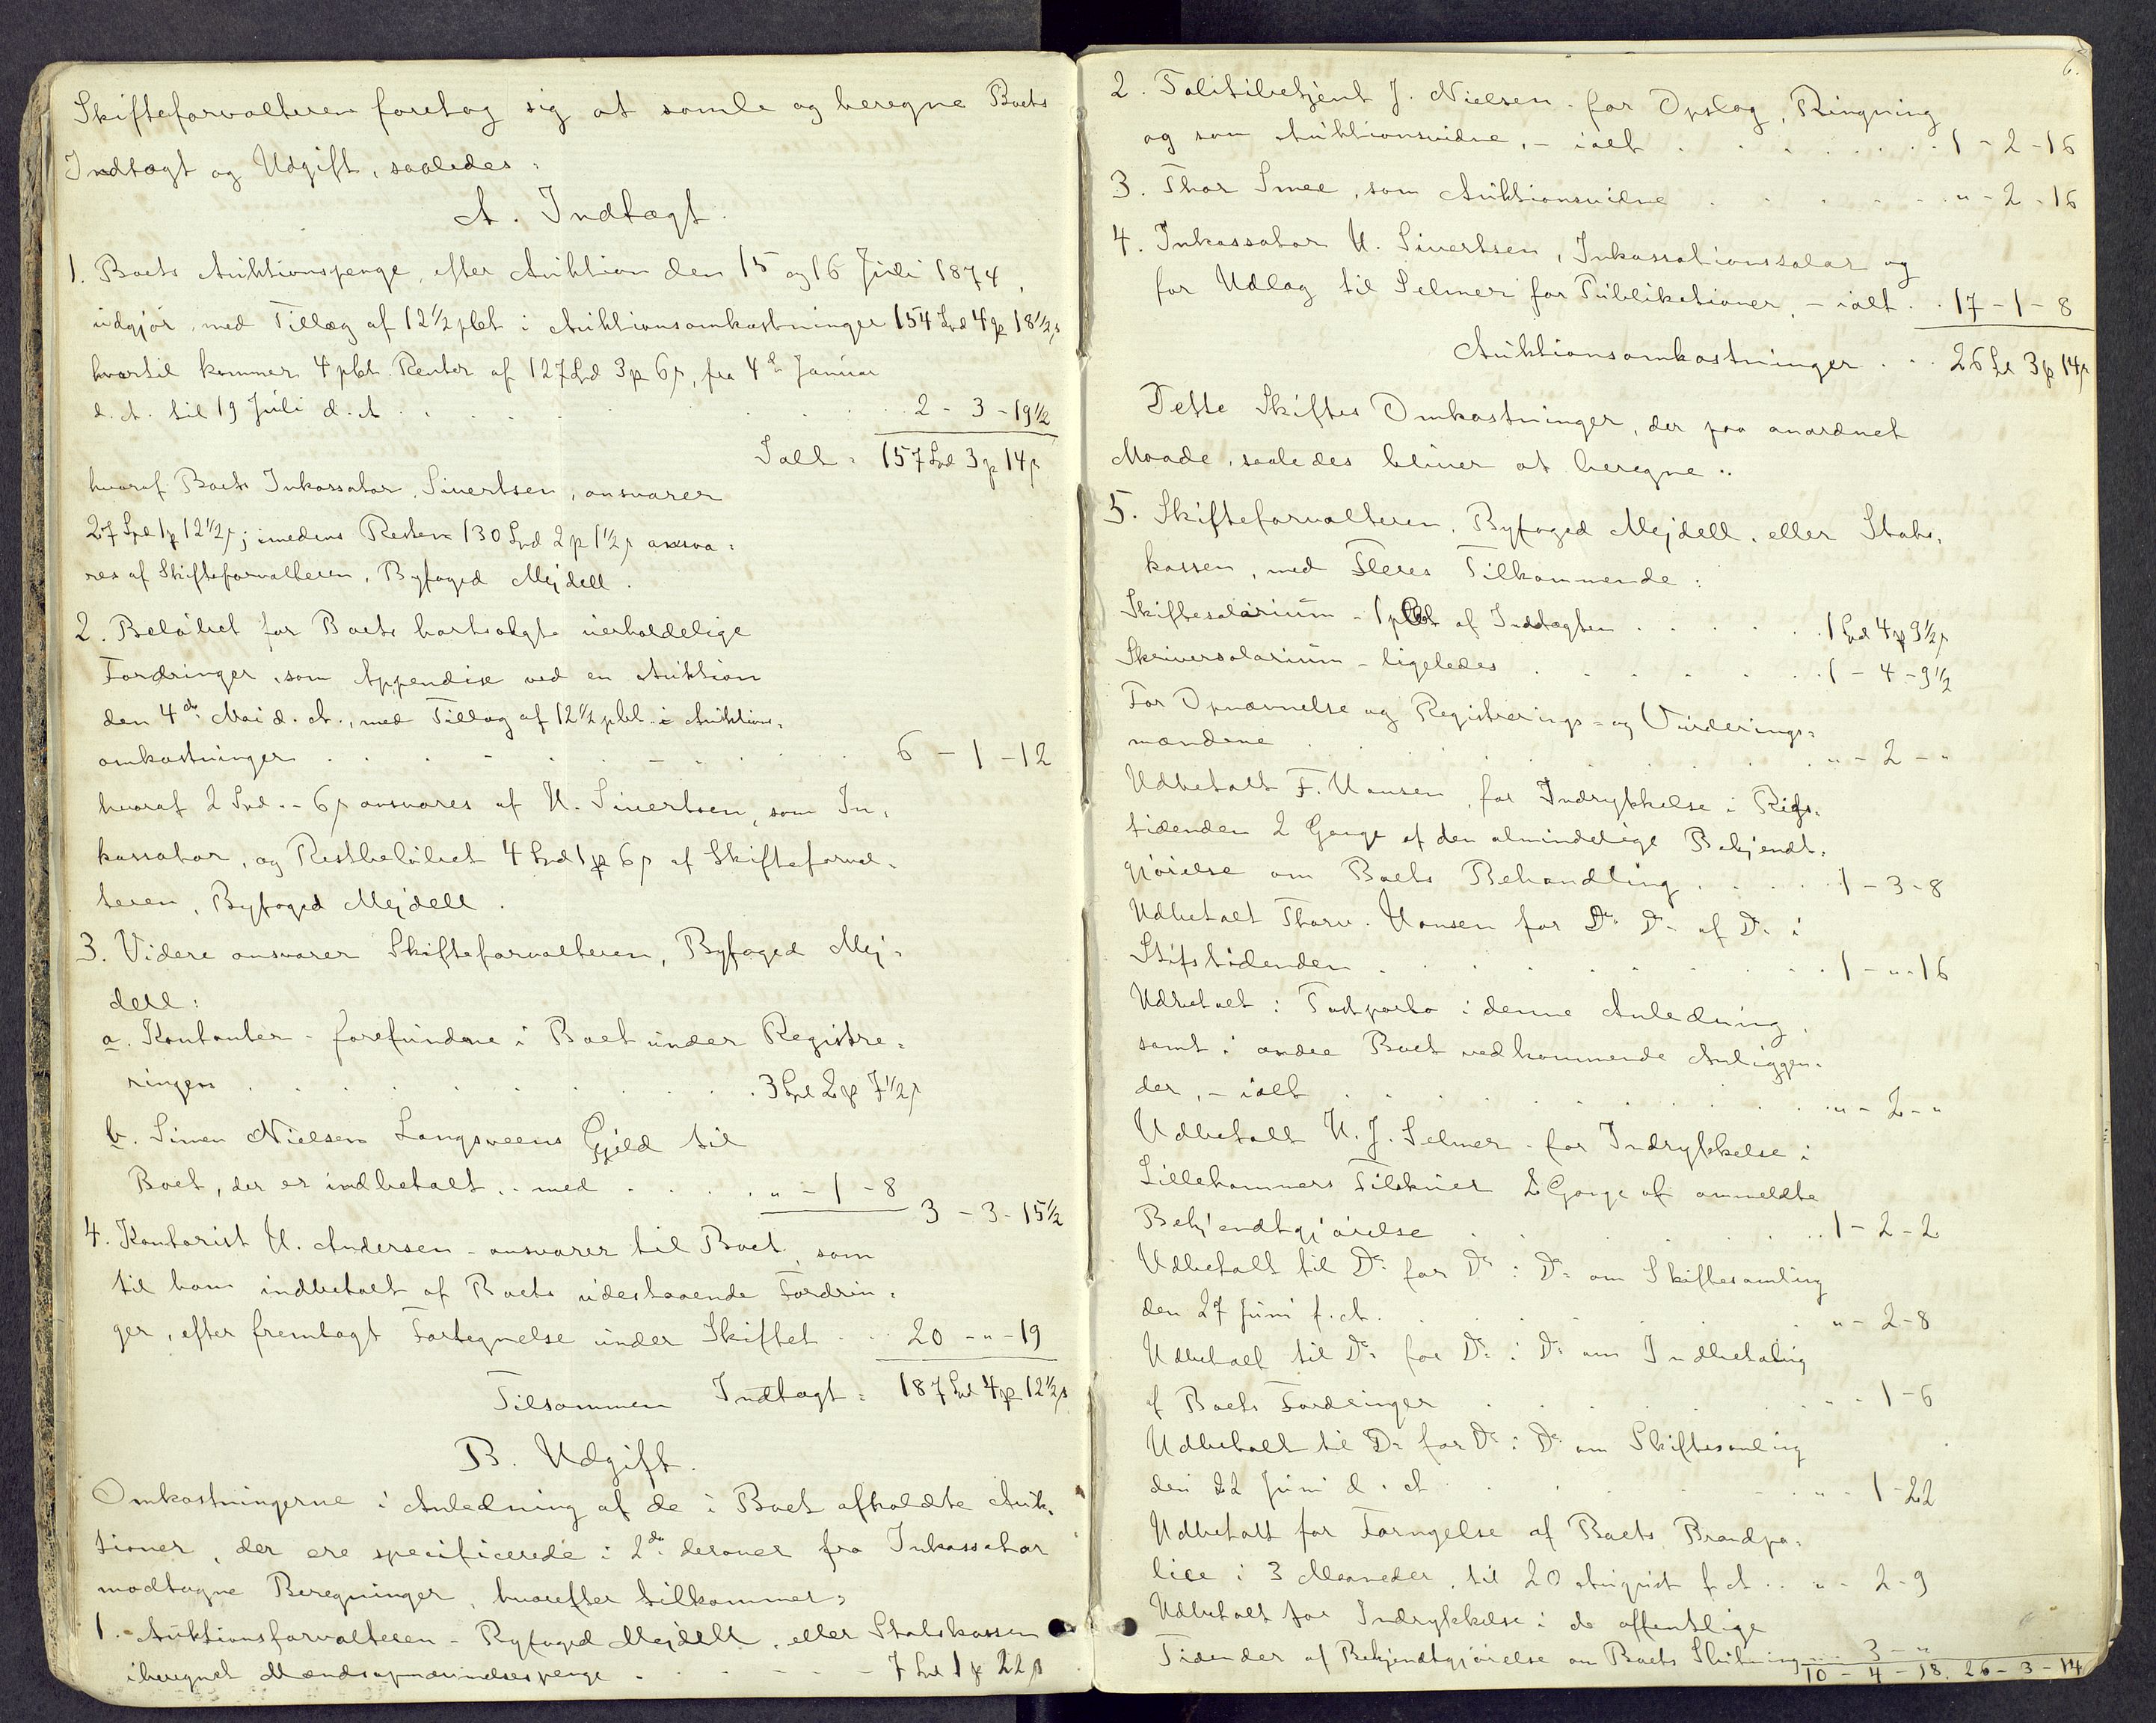 Skifteforvalteren foretog sig at samle og beregne Boets
Indtægt og Udgift, saaledes:
A. Indtægt.
1. Boets Auktionspenge, efter Auktion den 15 og 16 Juli 1874,
udgjør, med Tillæg af 12½ pCt. i Auktionsomkostninger 154 Spd 4 p 18½ s
hvortil kommer 4 pCt. Renter af 127 Spd 3 p 6 s, fra 4de Januar
d. A. til 19 Juli d. A. . . . 2 - 3 - 19½
Ialt = 157 Spd 3 p 14 s
hvoraf Boets Inkassator, Sivertsen, ansvarer
27 Spd 1 p 12½ s; imedens Resten 130 Spd 2 p 1½ s ansva=
res af Skifteforvalteren, Byfoged Mejdell.
2. Beløbet for Boets bortsolgte uerholdelige
Fordringer, som Appendix ved en Auktion
den 4de Mai d. A., med Tillæg af 12½ pCt. i Auktions=
omkostninger . . . 6 - 1 - 12
hvoraf 2 Spd. - 6 s ansvares af H. Sivertsen, som In=
kassator, og Restbeløbet 4 Spd 1 p 6 s af Skifteforval=
teren, Byfoged Mejdell.
3. Videre ansvarer Skifteforvalteren, Byfoged Mej=
dell:
a. Kontanter - forefundne i Boet under Registre=
ringen . . . 3 Spd 2 p 7½ s
b. Simen Nielsen Langsveens Gjeld til
Boet, der er indbetalt, - med . . . " - 1 - 8
3 - 3 - 15½
4. Kontorist H. Andersen - ansvarer til Boet, som
til ham indbetalt af Boets udestaaende Fordrin=
ger, efter fremlagt Fortegnelse under Skiftet . . 20 - " - 19
Tilsammen Indtægt = 187 Spd 4 p 12½ s
B. Udgift.
Omkostningerne i Anledning af de i Boet afholdte Auk=
tioner, der ere specificerede i 2de derover fra Inkassator
modtagne Beregninger, hvorefter tilkommer:
1. Auktionsforvalteren - Byfoged Mejdell, eller Statskassen
iberegnet Mændsopnævnelsespenge . . . 7 Spd 1 p 22 s
6.
2. Politibetjent J. Nielsen - for Opslag, Ringning
og som Auktionsvidne, - ialt . . . 1 - 2 - 16
3. Thor Smee, som Auktionsvidne . . . " - 2 - 16
4. Inkassator H. Sivertsen, Inkassationssalær og
for Udlæg til Selmer for Publikationer, - ialt . . 17 - 1 - 8
Auktionsomkostninger . . . 26 Spd 3 p 14 s
Dette Skiftes Omkostninger, der paa anordnet
Maade, saaledes bliver at beregne:
5. Skifteforvalteren, Byfoged Mejdell, eller Stats=
kassen, med Fleres Tilkommende:
Skiftesalarium - 1 pCt af Indtægten . . . 1 Spd 4 p 9½ s
Skriversalarium - ligeledes . . . 1 - 4 - 9½
For Opnævnelse og Registrerings- og Vurderings=
mændene . . . " - 2 - "
Udbetalt F. Hansen, for Indrykkelse i Rigs=
tidenden 2 Gange af den almindelige Bekjendt=
gjørelse om Boets Behandling . . . 1 - 3 - 8
Udbetalt Thorv. Hansen for Do Do af Do i
Stifstidenden . . . 1 - " - 16
Udbetalt i Postporto i denne Anledning,
samt i andre Boet vedkommende Anliggen=
der, - ialt . . . " - 2 - "
Udbetalt H. J. Selmer - for Indrykkelse i
Lillehammers Tilskuer 2 Gange af anmeldte
Bekjendtgjørelse . . . 1 - 2 - 2
Udbetalt til Do for Do i Do om Skiftesamling
den 27 Juni f. A. . . . " - 2 - 8
Udbetalt til Do for Do i Do om Indbetaling
af Boets Fordringer . . . " - 1 - 6
Udbetalt til Do for Do i Do om Skiftesamling
den 22 Juni d. A. . . . " - 1 - 22
Udbetalt for Fornyelse af Boets Brandpo=
lice i 3 Maaneder, til 20 August f. A. . . " - 2 - 9
Udbetalt for Indrykkelse i de offentlige
Tidender af Bekjendtgjørelse om Boets Slutning . . . 3 - "
10 - 4 - 18. 26 - 3 - 14